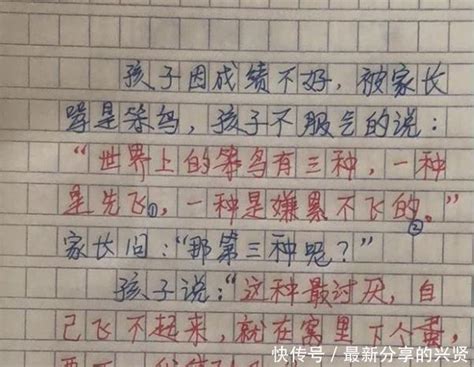 孩子因成绩不好，被家长
骂是笨鸟，孩子不服气的说：
“世界上的笨鸟有三种，一种
是先飞①，一种是嫌累不飞的。”②
家长问：“那第三种呢？”
孩子说：“这种最讨厌，自
己飞不起来，就在窝里下个蛋，
快传号/最新分享的兴贤